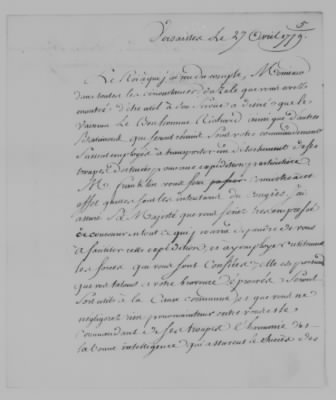 5
Versailles Le 27 Avril 1779.
Le Roi à qui j'ai rendu compte, Monsieur
dans toutes les circonstances du zele que vous avez
montré d'être utile à son service a desiré que le
Vaisseau Le Bonhomme Richard ainsi que d'autres
Batimens qui seront réunis sous votre commandement
fussent employés à transporter un détachement de ses
troupes destinés pour une expédition particulière
M. franklin vous fera passer
effet quelles sont les intentions du Congrès, j'ai
assuré Sa Majesté que vous feriez
concourir en tout ce qui pourra dépendre de vous
à faciliter cette expédition, et à employer utilement
les forces qui vous sont Confiées, elle est persuadée
que vos talens et votre bravoure éprouvés seront
fort utils à la Cause commune et que vous ne
negligerez rien pour maintenir entre vous et le
commandant de ses troupes l'harmonie et
la bonne intelligence qui assurent le succès des